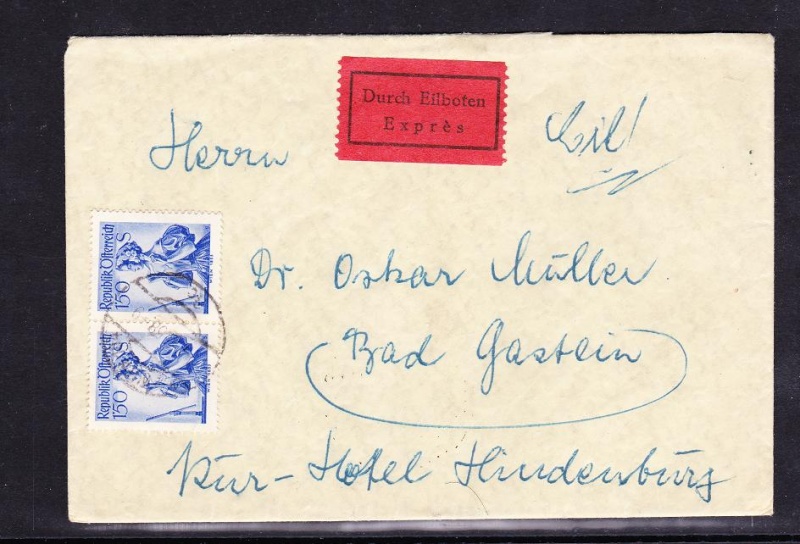 Durch Eilboten
Exprès
Eil!
Herrn
Dr. Oskar Müller
Bad Gastein
Kur-Hotel Hindenburg
Republik Österreich
1.50 S
Republik Österreich
1.50 S